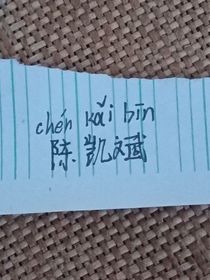 chén kǎi bīn
陈凯斌